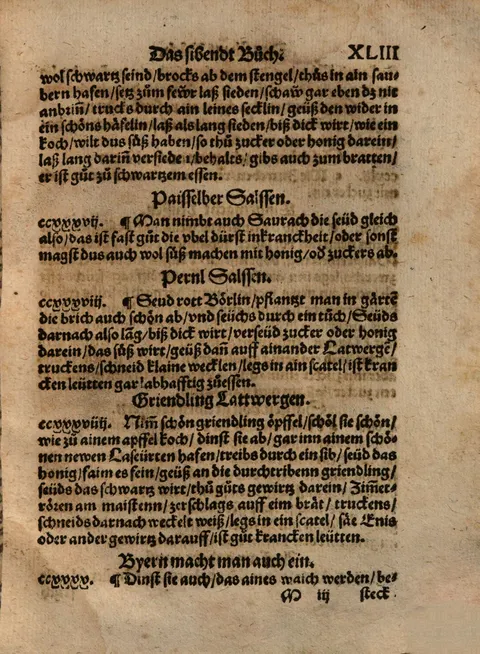 Das sibendt Bůch. XLIII
wol schwartz seind/brocks ab dem stengel/thůs in ain sau-
bern hafen/setz zům fewr laß sieden/schaw gar eben dz nit
anbriñ/trucks durch ain leines secklin/geüß den wider in
ein schöns häfelin/laß als lang sieden/biß dick wirt/wie ein
koch/wilt dus süß haben/so thů zucker oder honig darein/
laß lang dariñ versiede /behalts/gibs auch zum bratten/
er ist gůt zů schwartzem essen.
Paisselber Salssen.
ccxxxvij. ¶ Man nimbt auch Saurach die seüd gleich
also/das ist fast gůt die vbel dürst inkranckheit/oder sonst
magst dus auch wol süß machen mit honig/oď zuckers ab.
Pernl Salssen.
ccxxxviij. ¶ Seud rott Börlin/pflantzt man in gärtē
die brich auch schön ab/vnd seüchs durch ein tůch/Seüds
darnach also lāg/biß dick wirt/verseüd zucker oder honig
darein/das süß wirt/geüß dañ auff ainander Latwergē/
truckens/schneid klaine wecklen/legs in ain scatel/ist kran
cken leütten gar labhafftig zůessen.
Griendling Lattwergen.
ccxxxviiij. Nim̃ schön griendling öpffel/schöl sie schön/
wie zů ainem apffel koch/ dinst sie ab/gar inn ainem schö-
nen newen Laseürten hafen/treibs durch ein sib/seüd das
honig/faim es fein/geüß an die durchtribenn griendling/
seüds das schwartz wirt/thů gůts gewirtz darein/Zim̃er-
rözen am maistenn/zerschlags auff eim brät/truckens/
schneids darnach weckelt weiß/legs in ein scatel/ säe Enis
oder ander gewirtz darauff/ist gůt krancken leütten.
Byern macht man auch ein.
ccxxxx. ¶ Dinst sie auch/das aines waich werden/be-
M iij steck